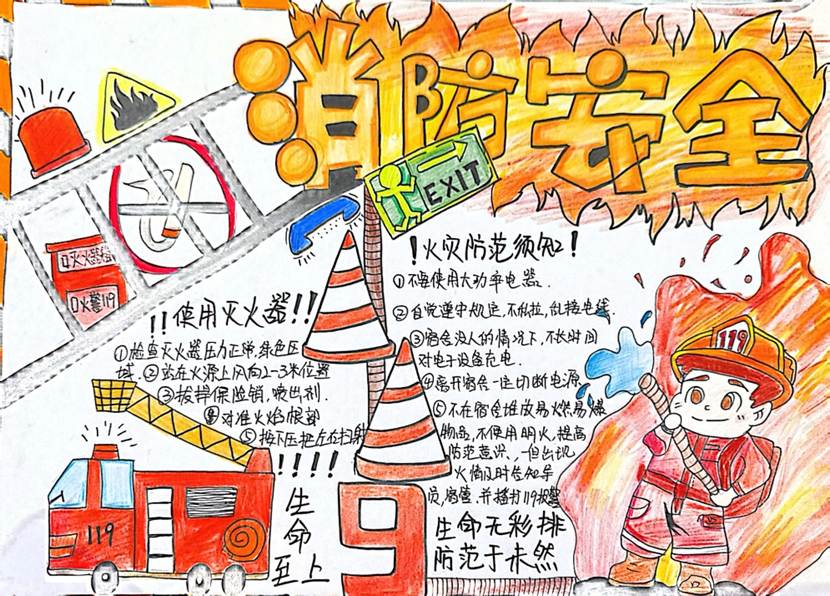 消防安全
EXIT
灭火器箱
火警119
！火灾防范须知！
①不要使用大功率电器.
②自觉遵守规定,不私拉,乱接电线.
③宿舍没人的情况下,不长时间
对电子设备充电.
④离开宿舍一定切断电源
⑤不在宿舍堆放易燃易爆
物品,不使用明火,提高
防范意识,一但出现
火情及时告知宿
员,宿管,并拨打119报警
!!使用灭火器!!
①检查灭火器压力正常,绿色区
域.②站在火源上风向1-3米位置
③拔掉保险销,喷出剂.
④对准火焰根部
⑤按下压把左右扫射
!!!!
生
命
至上
119
9
生命无彩排
防范于未然
119